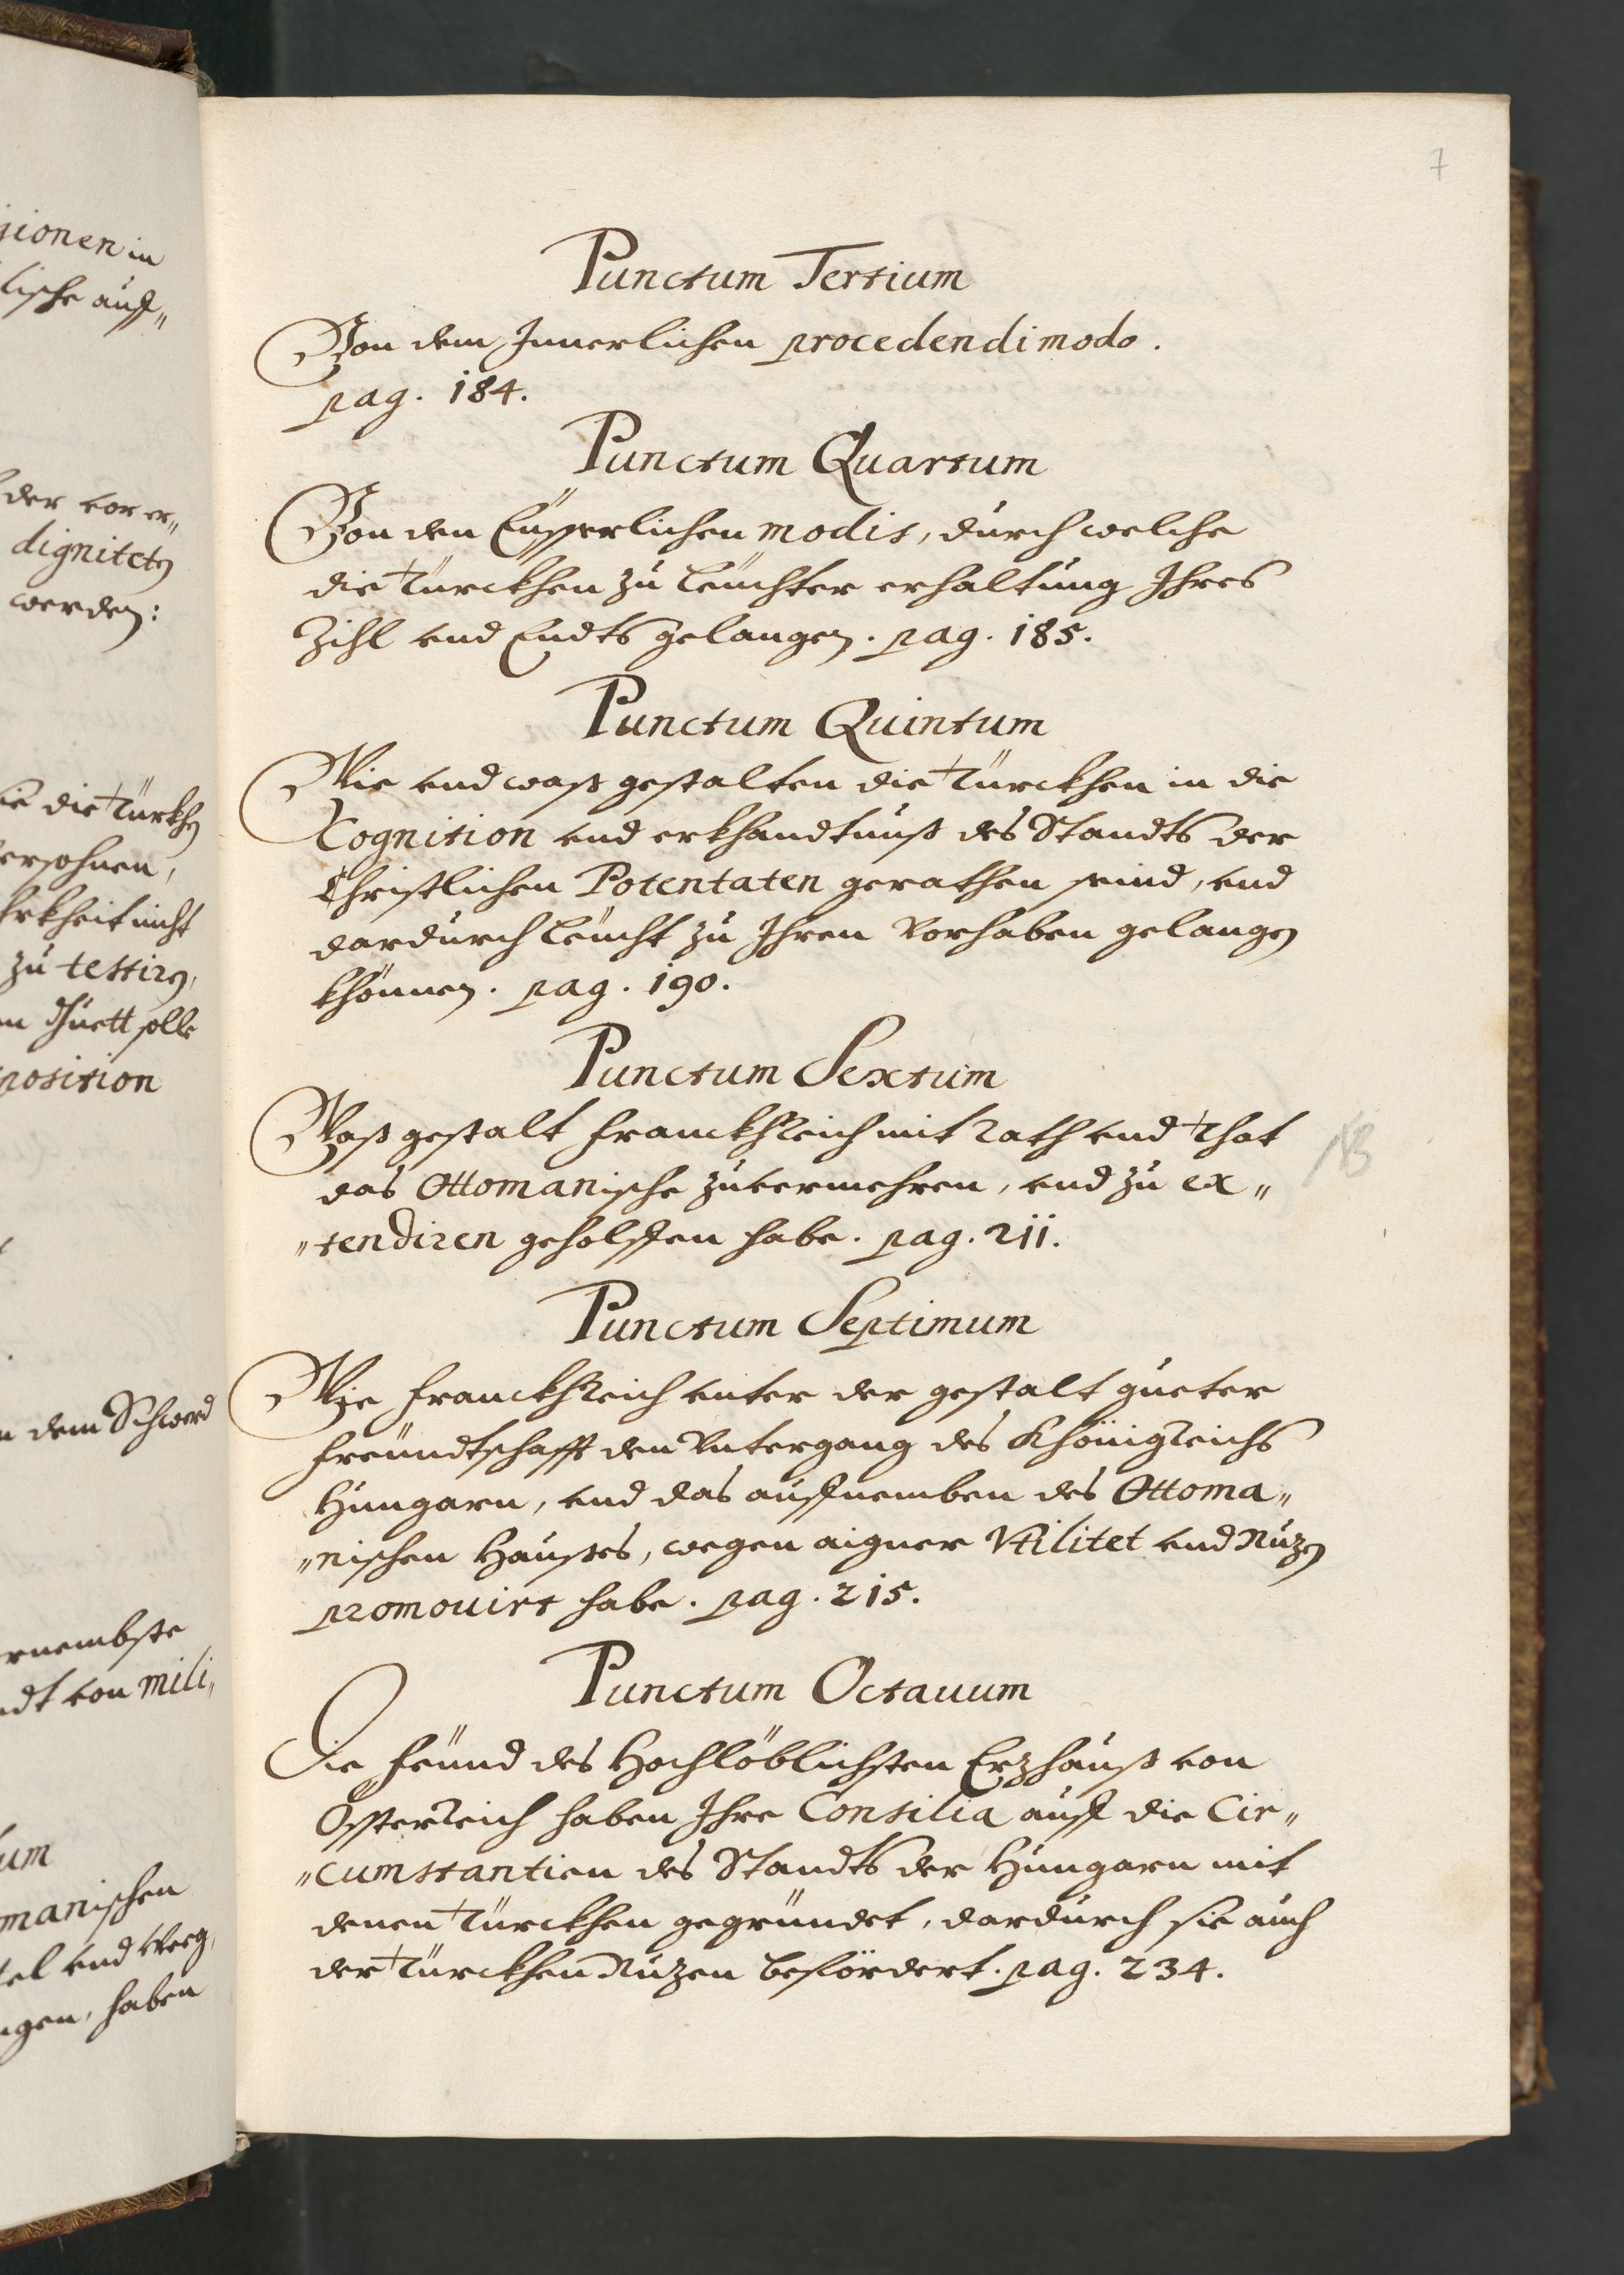 7
Punctum Tertium
Von dem Innerlichen procedendi modo.
pag. 184.
Punctum Quartum
Von den Eüsserlichen modis, durch welche
die Türckhen zu leuchter erhaltung Ihres
Zihl vnd Endts gelangen. pag. 185.
Punctum Quintum
Wie vnd waß gestalten die Türckhen in die
Cognition vnd erkhandtnuß des Standts der
Christlichen Potentaten gerathen seind, vnd
dardurch leücht zu Ihren Vorhaben gelangen
khönnen. pag. 190.
Punctum Sextum
Waß gestalt Franckhreich mit rath vnd that
das Ottomanische zuuermehren, vnd zu ex„
„tendiren geholffen habe. pag. 211.
NB
Punctum Septimum
Wie Franckhreich vnter der gestalt gueter
freündtschafft den Vntergang des Khönigreichs
Hungarn, vnd das auffnemben des Ottoma„
„nischen Haußes, wegen aigner Vtilitet vnd Nuzen
promouirt habe. pag. 215.
Punctum Octauum
Die feünd des Hochlöblichsten Erzhauß von
Össterreich haben Ihre Consilia auff die Cir„
„cumstantien des Standts der Hungarn mit
denen Türckhen gegründet, dardurch sie auch
der Türckhen Nuzen befördert. pag. 234.
gionen in
lische auff„
der vor er„
digniteten
werden:
die Türkhen
Persohnen,
nicht
zu testiren,
solle
position
dem Schwerd
von mili„
manischen
vnd Weeg,
haben